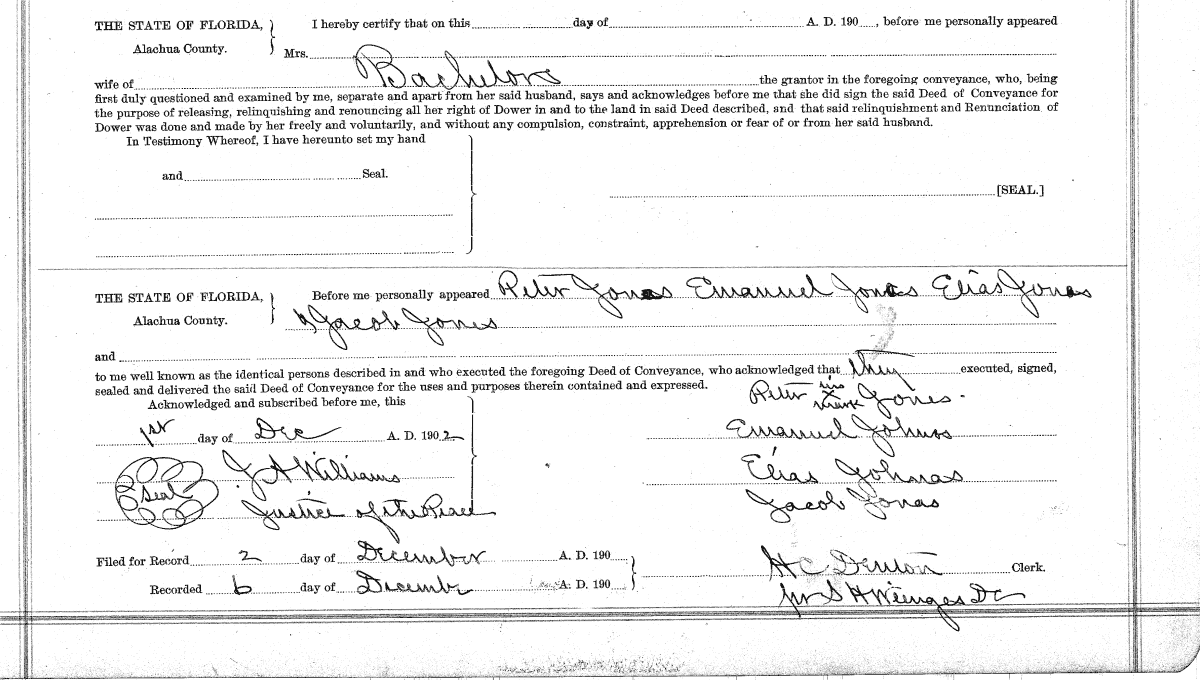 THE STATE OF FLORIDA, I hereby certify that on this day of A. D. 190 , before me personally appeared
Alachua County. Mrs.
Bachelors
wife of the grantor in the foregoing conveyance, who, being
first duly questioned and examined by me, separate and apart from her said husband, says and acknowledges before me that she did sign the said Deed of Conveyance for
the purpose of releasing, relinquishing and renouncing all her right of Dower in and to the land in said Deed described, and that said relinquishment and Renunciation of
Dower was done and made by her freely and voluntarily, and without any compulsion, constraint, apprehension or fear of or from her said husband.
In Testimony Whereof, I have hereunto set my hand
and Seal.
[SEAL.]
THE STATE OF FLORIDA, Before me personally appeared Peter Jonas Emanuel Jonas Elias Jonas
Alachua County. & Jacob Jones
and
to me well known as the identical persons described in and who executed the foregoing Deed of Conveyance, who acknowledged that they executed, signed,
sealed and delivered the said Deed of Conveyance for the uses and purposes therein contained and expressed.
Acknowledged and subscribed before me, this Peter his X mark Jones.
1st day of Dec A. D. 1902 Emanuel Johnss
J A Williams Elias Johnas
Seal Justice of the Peace Jacob Jonas
Filed for Record 2 day of December A. D. 190 H C Denton Clerk.
Recorded 6 day of Decembr A. D. 190
pr S H Wienges DC